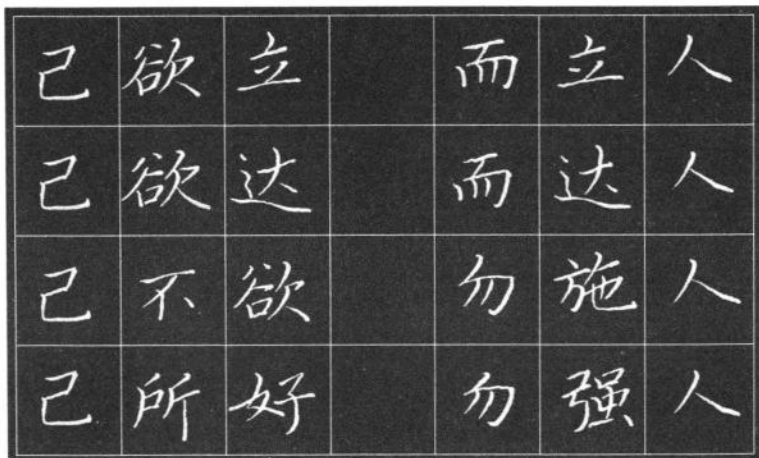 己欲立 而立人
己欲达 而达人
己不欲 勿施人
己所好 勿强人